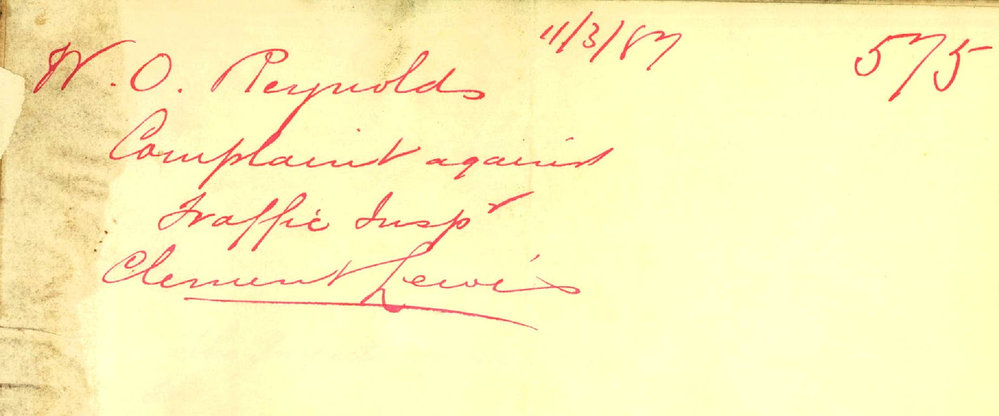 W. O. Reynolds 11/3/87 575
Complaint against
Traffic Inspr
Clement Lewis